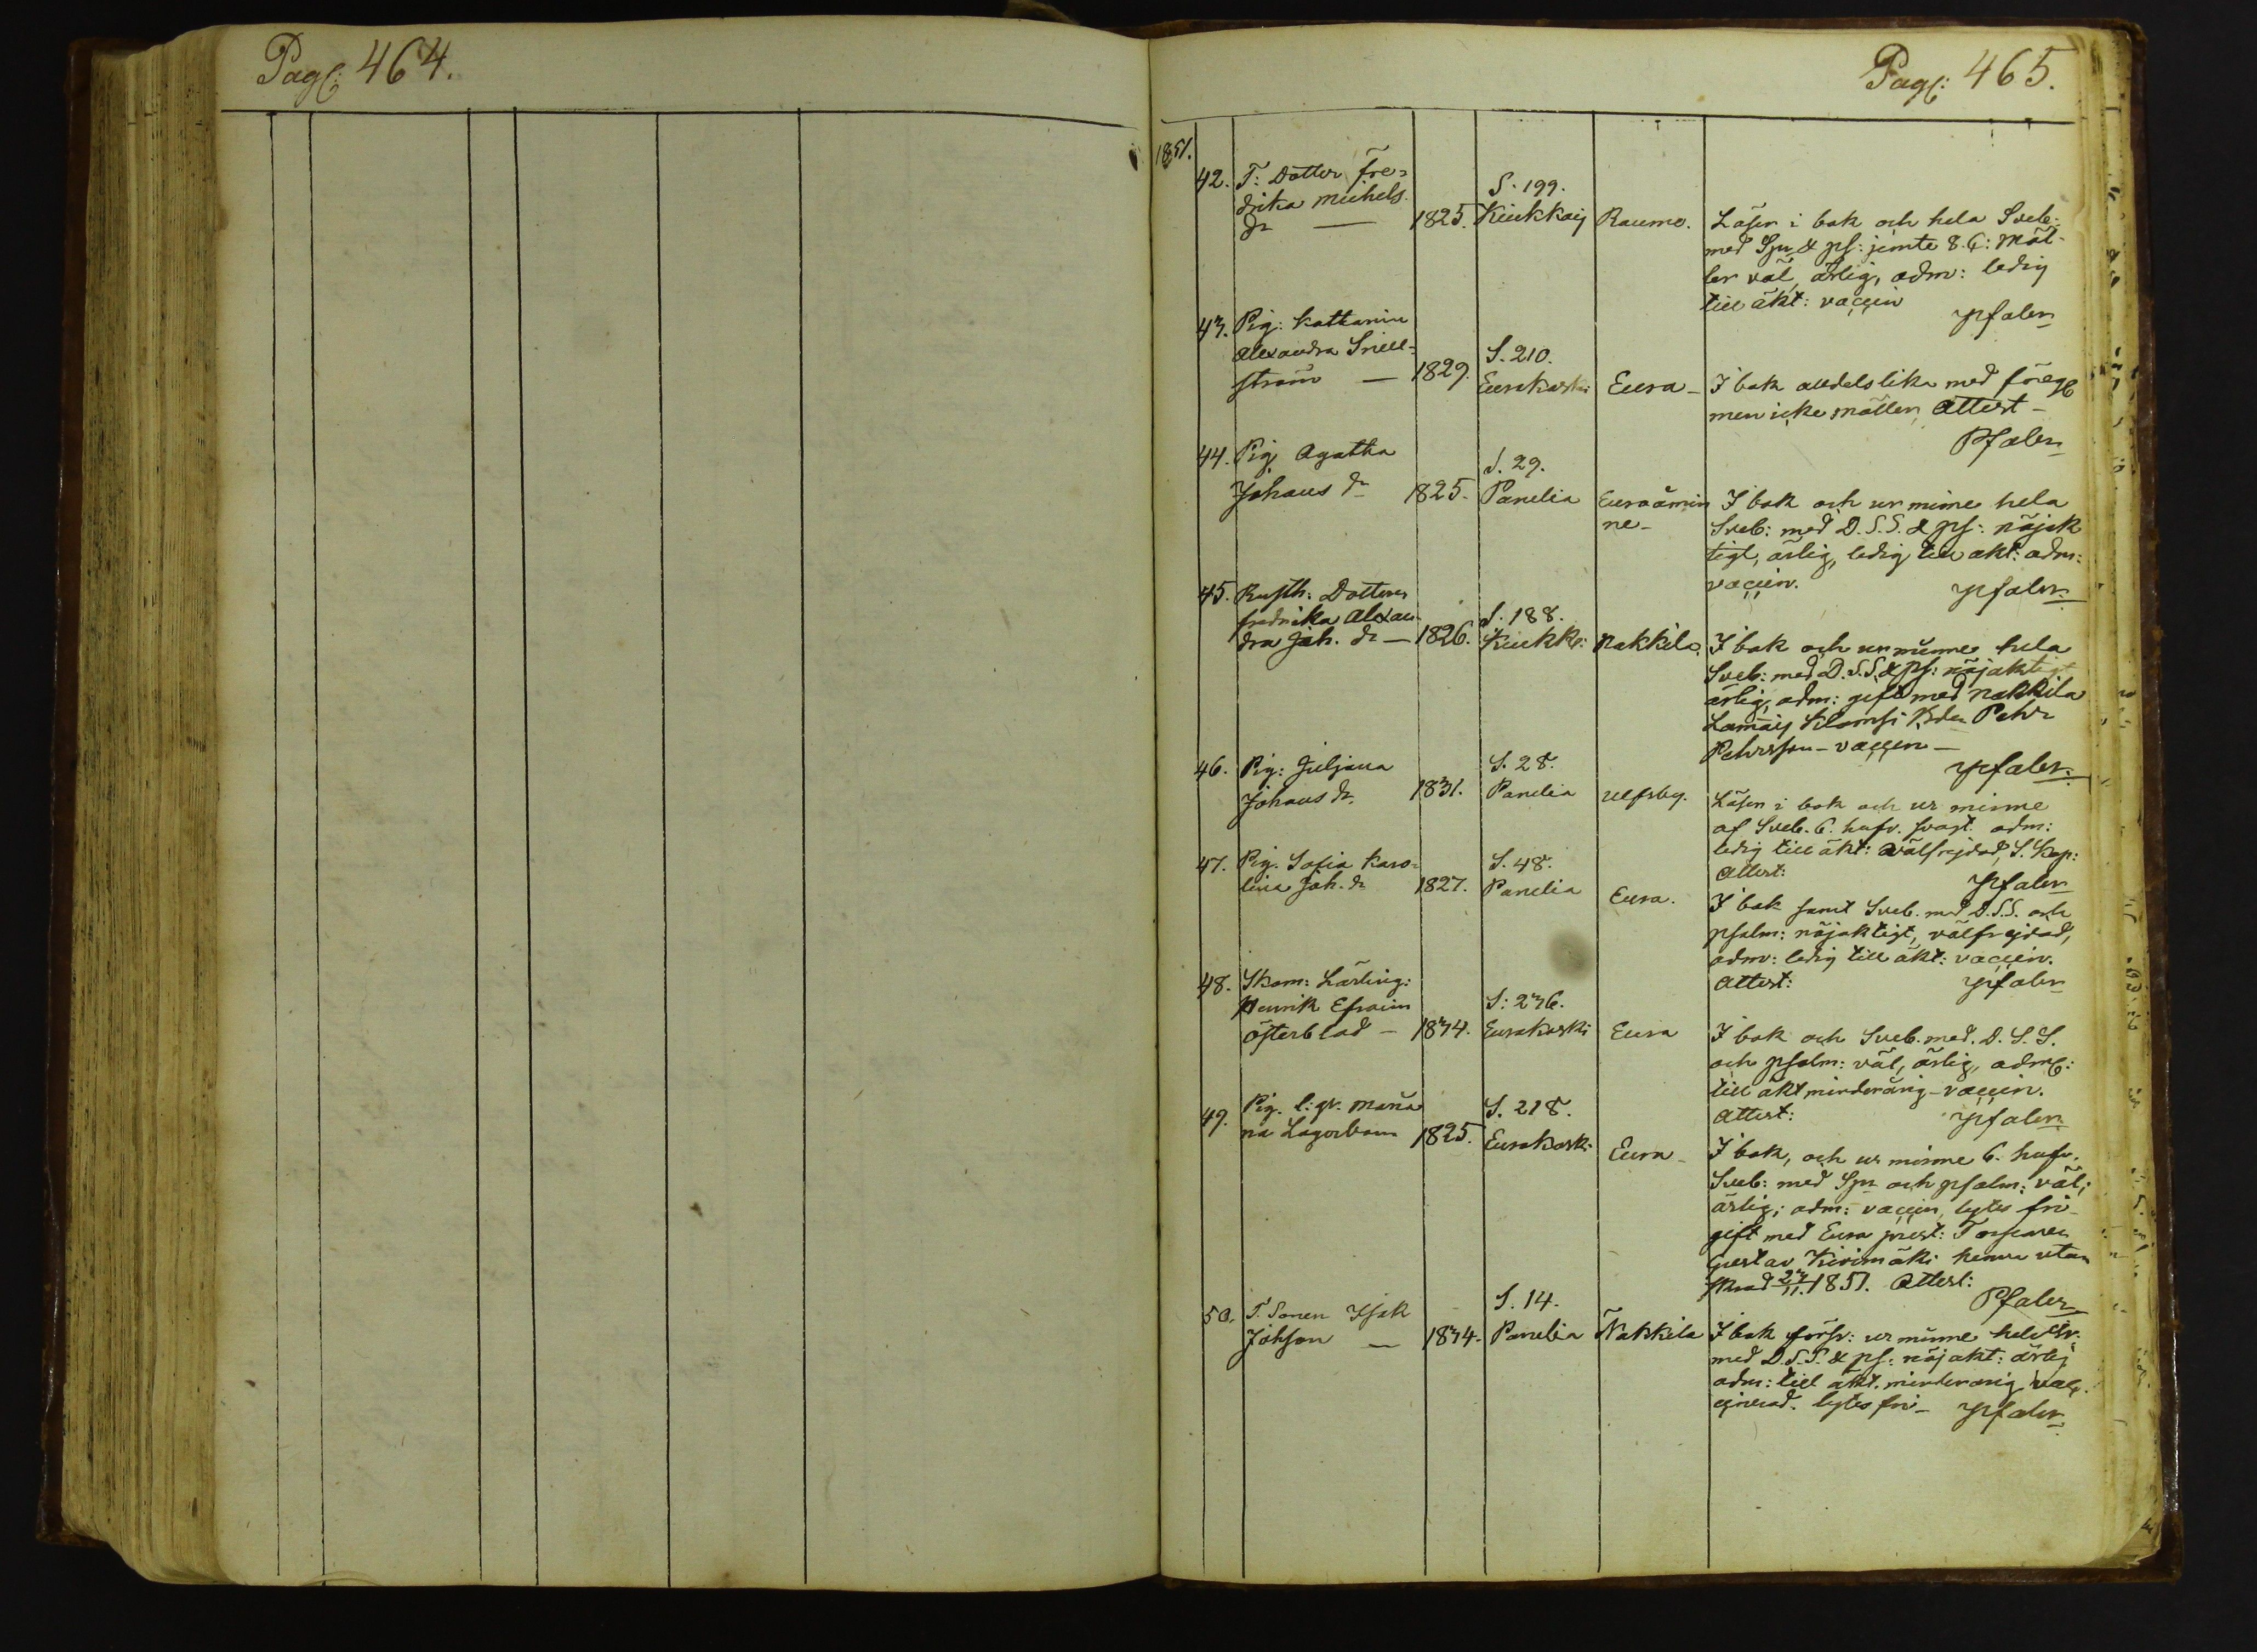 Pag: 464.
Pag: 465.
1851.
42. T: Dotter Fre-
drika Michels
dr — 1825. S. 199. Kiukkais Raumo.
Läser i bok och hela Sveb:
med Spr & ps: jemte 8. C: Möl-
ler väl, ärlig, adm: ledig
till äkt: vaccin
Pfaler
43. Pig: Katharina
Alexandra Snell-
ström — 1829. S. 210. Eurakoski Eura -
I bok alldeles lika med föreg
men icke Möller, Attest -
Pfaler
44. Pig Agatha
Johans dr 1825. S. 29. Panelia Euraåmin
ne -
I bok och ur minne hela
Sveb: med D. S. S. & ps: nöjak
tigt, ärlig, ledig till äkt: adm:
vaccin.
Pfaler
45. Rusth: Dottern
Fredrika Alexan
dra Joh. dr — 1826. S. 188. Kiukk: Nakkila.
I bok och ur minne hela
Sveb: med D. S. S. & ps: nöjaktigt
ärlig, adm: gift med Nakkila
Pehr
Pehrsson - vaccin —
Pfaler.
46. Pig: Juljana
Johans dr. 1831. S. 28. Panelia Ulfsby.
Läser i bok och ur minne
af Sveb. 6. hufv. svagt. adm:
ledig till äkt: välfrejdad, S. Kop:
Attest:
Pfaler
47. Pig. Sofia Karo-
lina Joh. dr 1827. S. 48. Panelia Eura.
I bok samt Sveb. med D. S. S. och
psalm: nöjaktigt, välfrejdad,
adm: ledig till äkt: vaccin.
Attest:
Pfaler
48. Skom: Lärling:
Henrik Efraim
Österblad — 1834. S: 236. Eurakoski Eura
I bok och Sveb. med. D. S. S.
och psalm: väl, ärlig, adm:
till äkt minderårig - vaccin.
Attest:
Pfaler
49. Pig. Maria
na Lagerbom 1825. S. 218. Eurakoski Eura -
I bok, och ur minne 6. hufv.
Sveb: med Spr och psalm: väl;
ärlig; adm: vaccin, lytes fri -
gift med Eura prest: Torparen
Gustav Kivimäki
1851. Attest:
Pfaler
50. T. Sonen Isak
Johsson — 1834. S. 14. Panelia Nakkila
I bok försv: ur minne hela Sv.
med D. S. S. & ps: nöjakt: ärlig
adm: till äkt. minderårig vac
cinerad. lytes fri - Pfaler